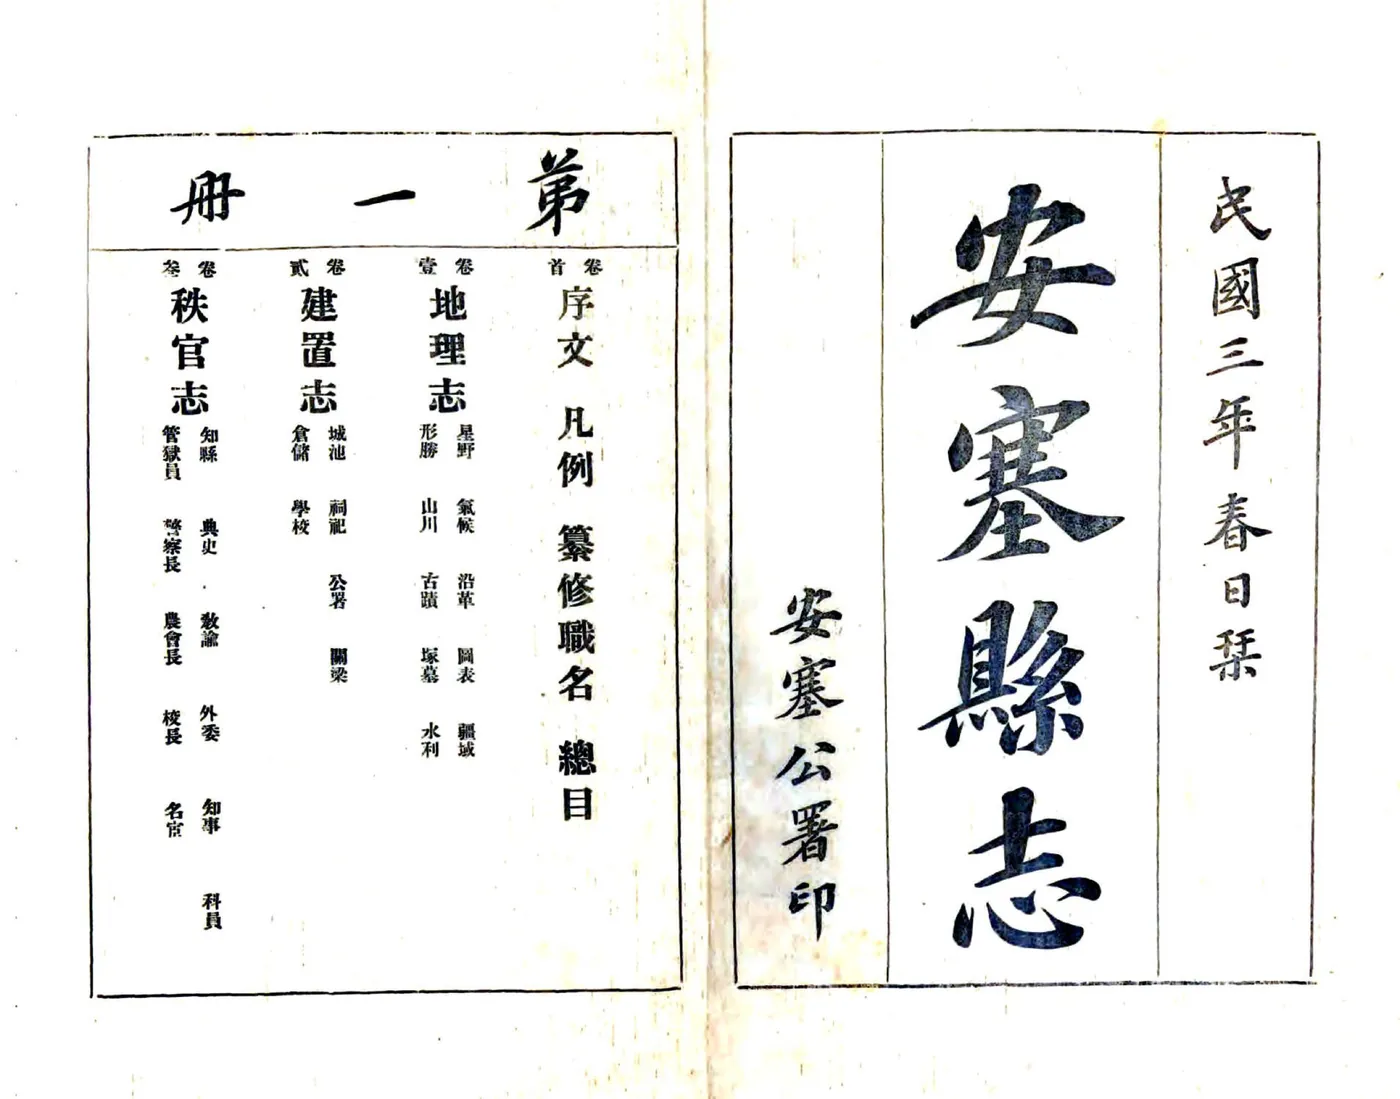 民國三年春日栞
安塞縣志
安塞公署印
弟一冊
卷首
序文 凡例 纂修職名 總目
卷壹
地理志
星野 氣候 沿革 圖表 疆域
形勝 山川 古蹟 塚墓 水利
卷貳
建置志
城池 祠祀 公署 關梁
倉儲 學校
卷叁
秩官志
知縣 典史 教諭 外委 知事 科員
管獄員 警察長 農會長 校長 名宦